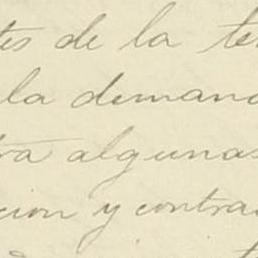 tes de la te
la demand
ra algunas
cion y contra